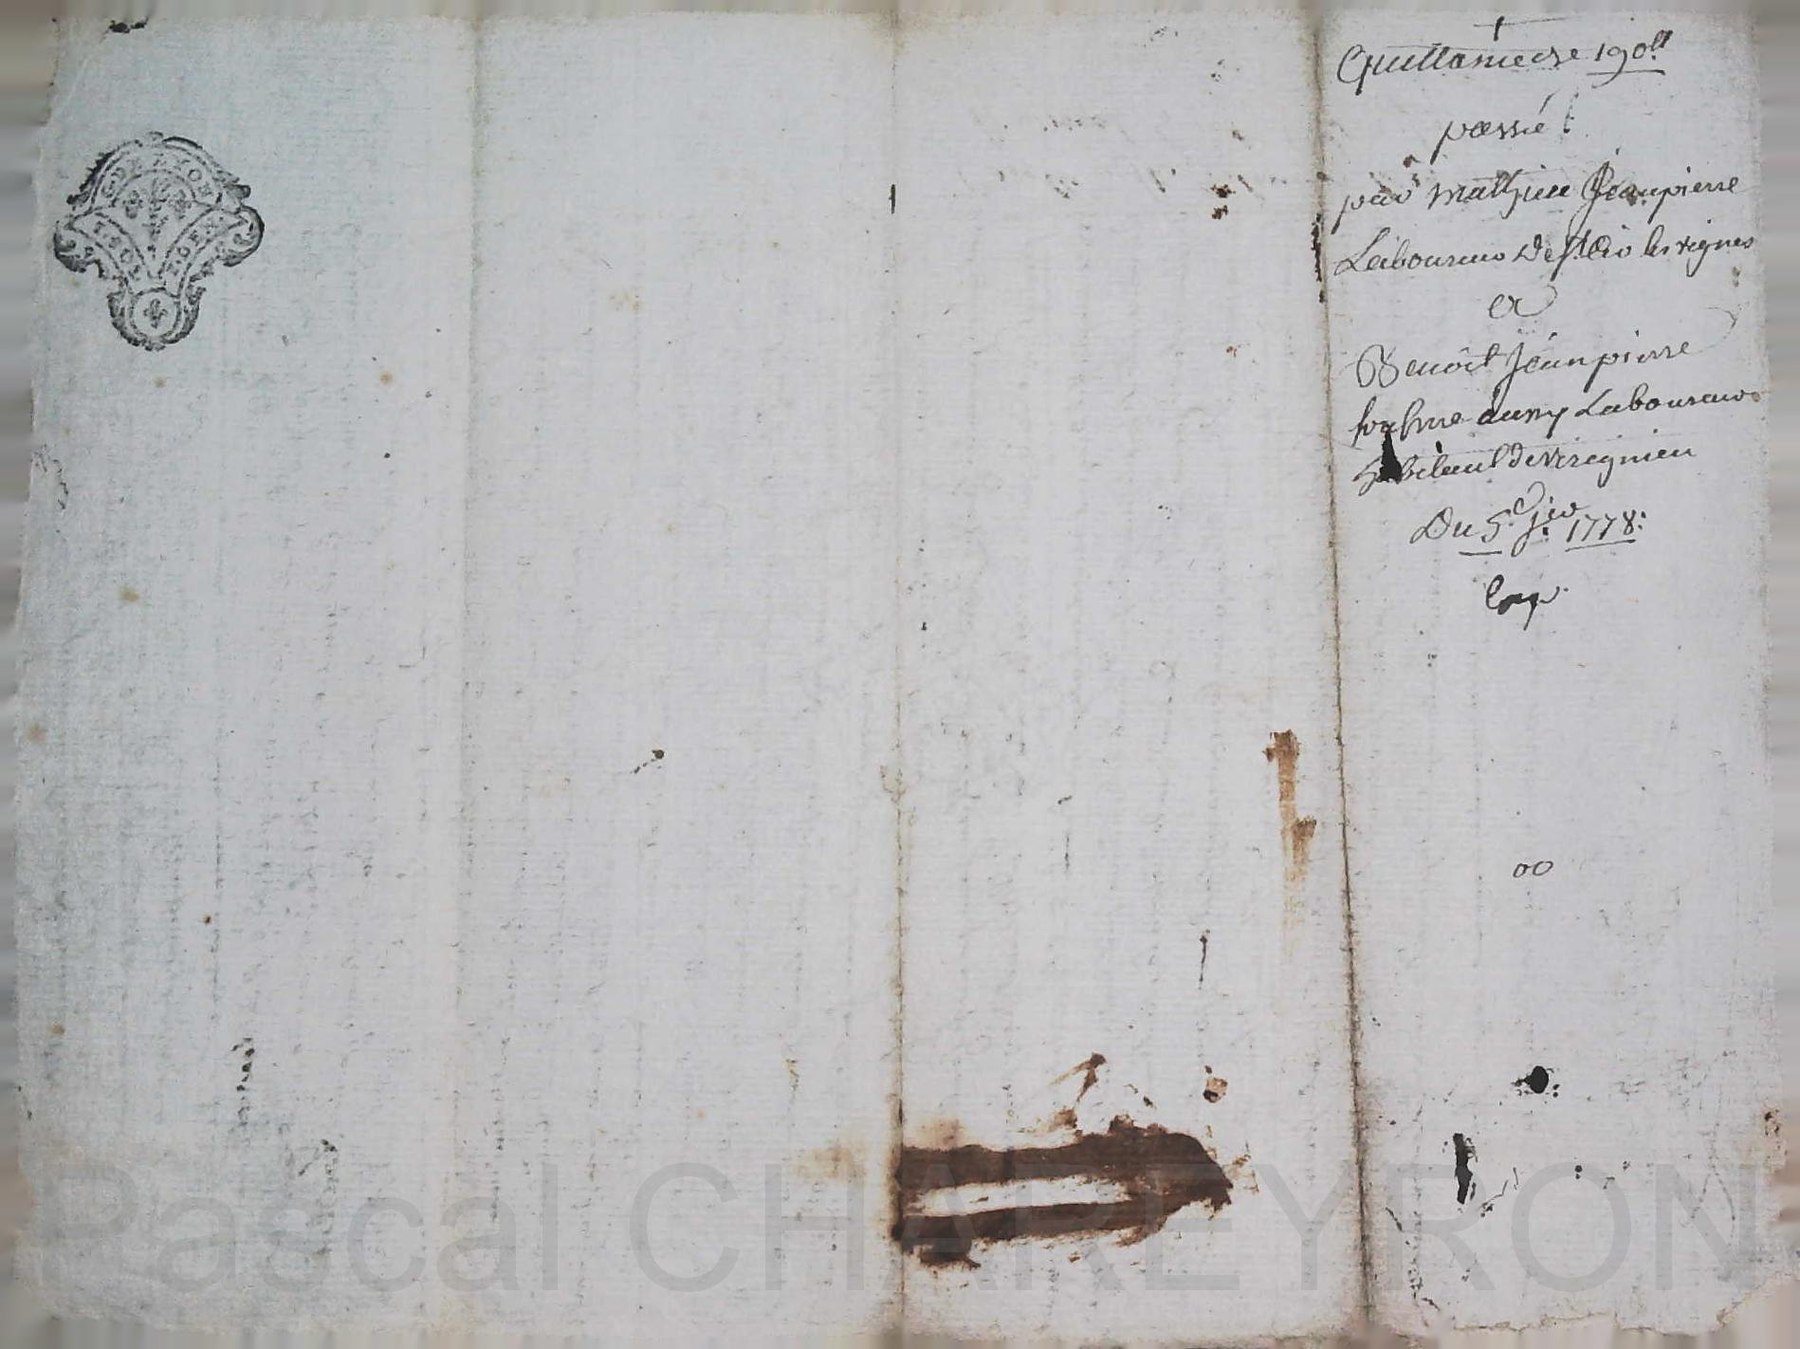 Quittance de 190ll
passé
par Mathieu Jeanpierre
Laboureur De les vignes
et
Benoit Jeanpierre
son frere aussy Laboureur
habitant de virignieu
Du 5e 1778:
Exp
oo
Pascal CHAREYRON